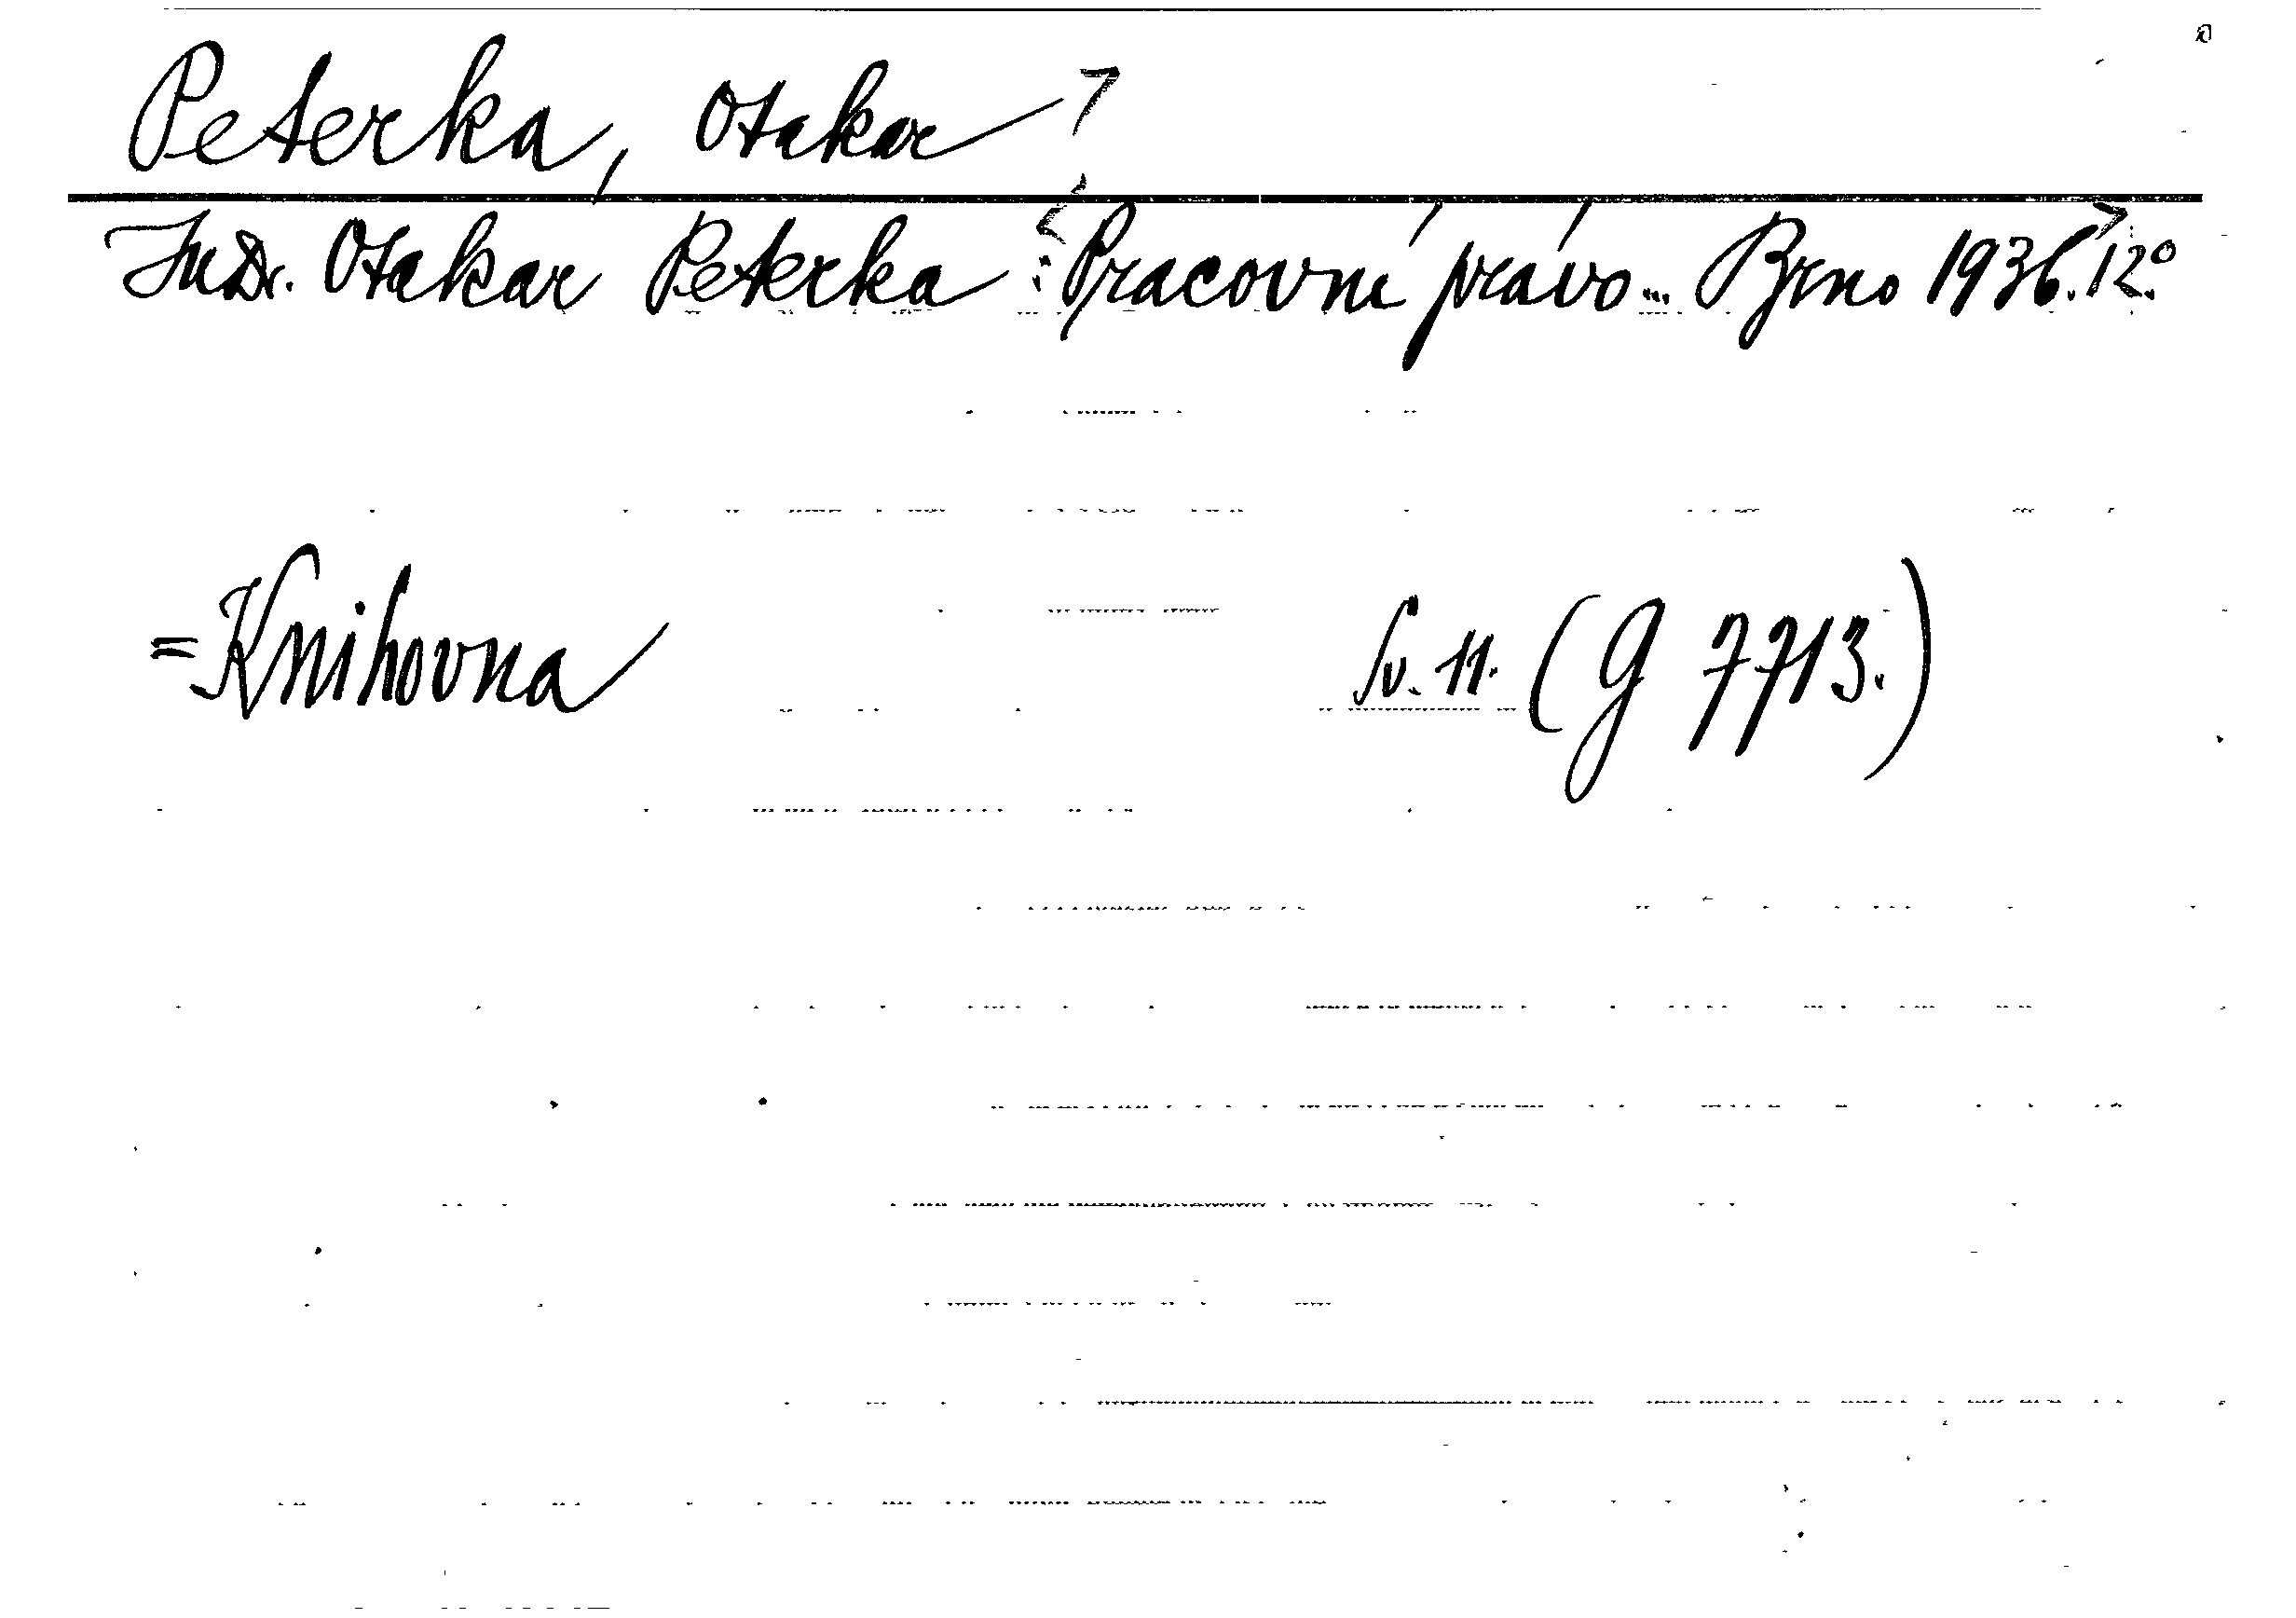 Peterka, Otakar
JuDr. Otakar Peterka : Pracovní právo... Brno 1936. 12.°
= Knihovna Sv. 11. (G 7713.)